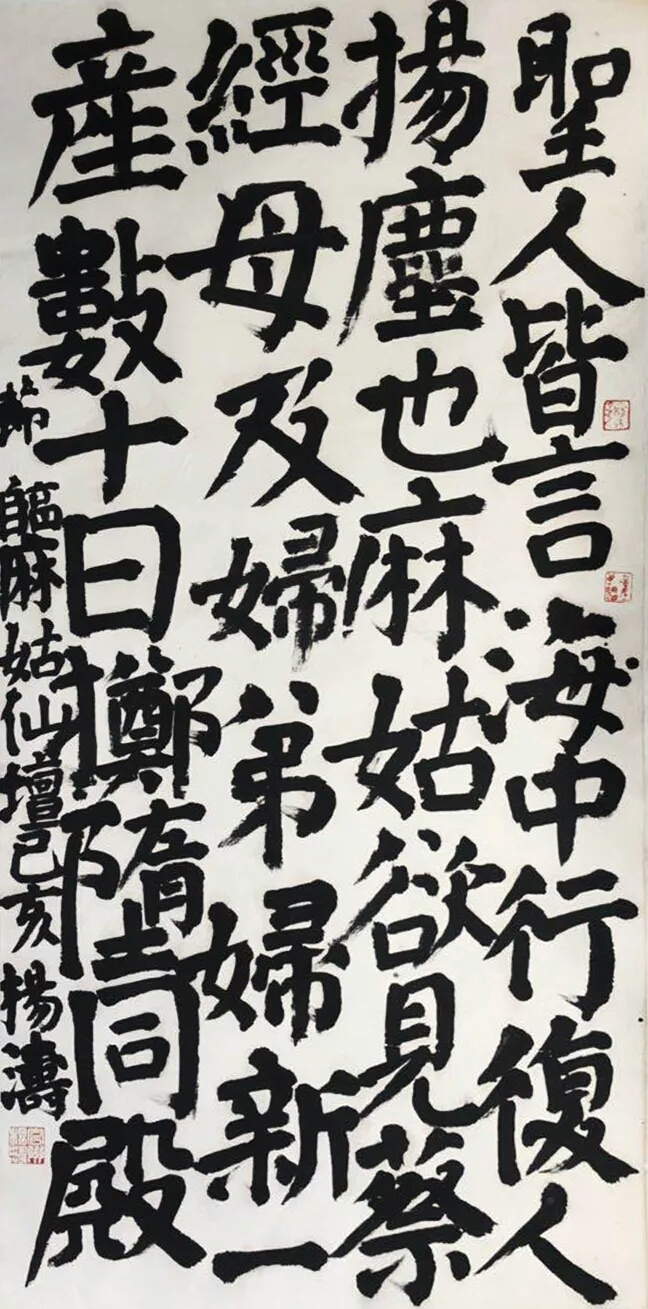 聖人皆言海中行復人
揚塵也麻姑欲見蔡
經母及婦弟婦新一
産數十日擲墮同殿
節臨麻姑仙壇己亥楊濤